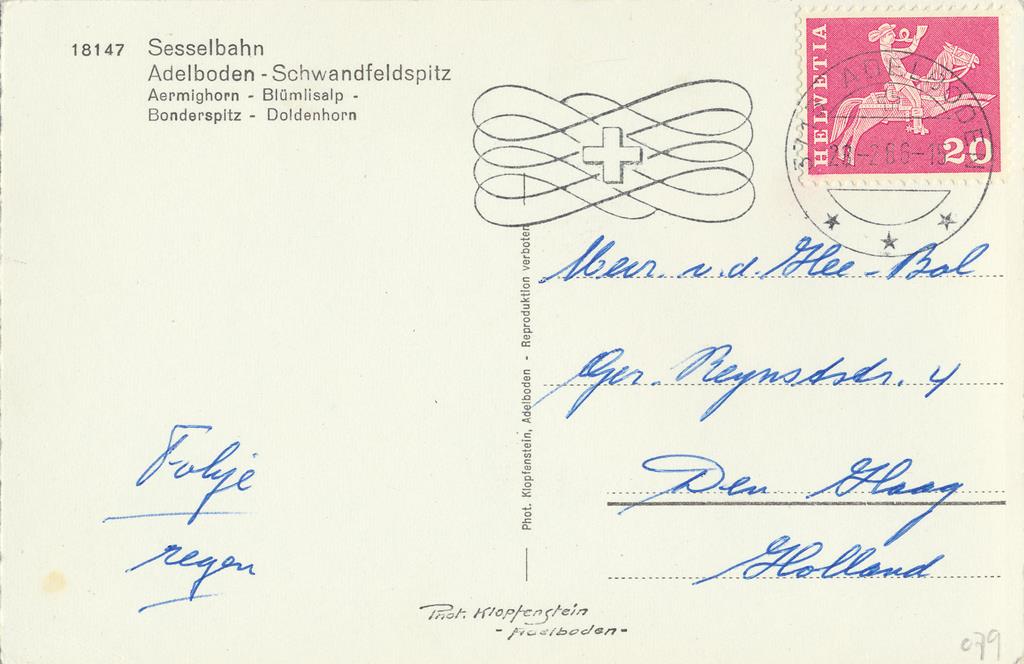 18147 Sesselbahn
Adelboden - Schwandfeldspitz
Aermighorn - Blümlisalp -
Bonderspitz - Doldenhorn
HELVETIA
20
ADELBODEN
28-2 66-15
Phot. Klopfenstein, Adelboden - Reproduktion verboten
Mevr. v.d. Hee-Bol
Ger. Reynststr. 4
Den Haag
Holland
Fotje
regen
Phot. Klopfenstein
- Adelboden -
079